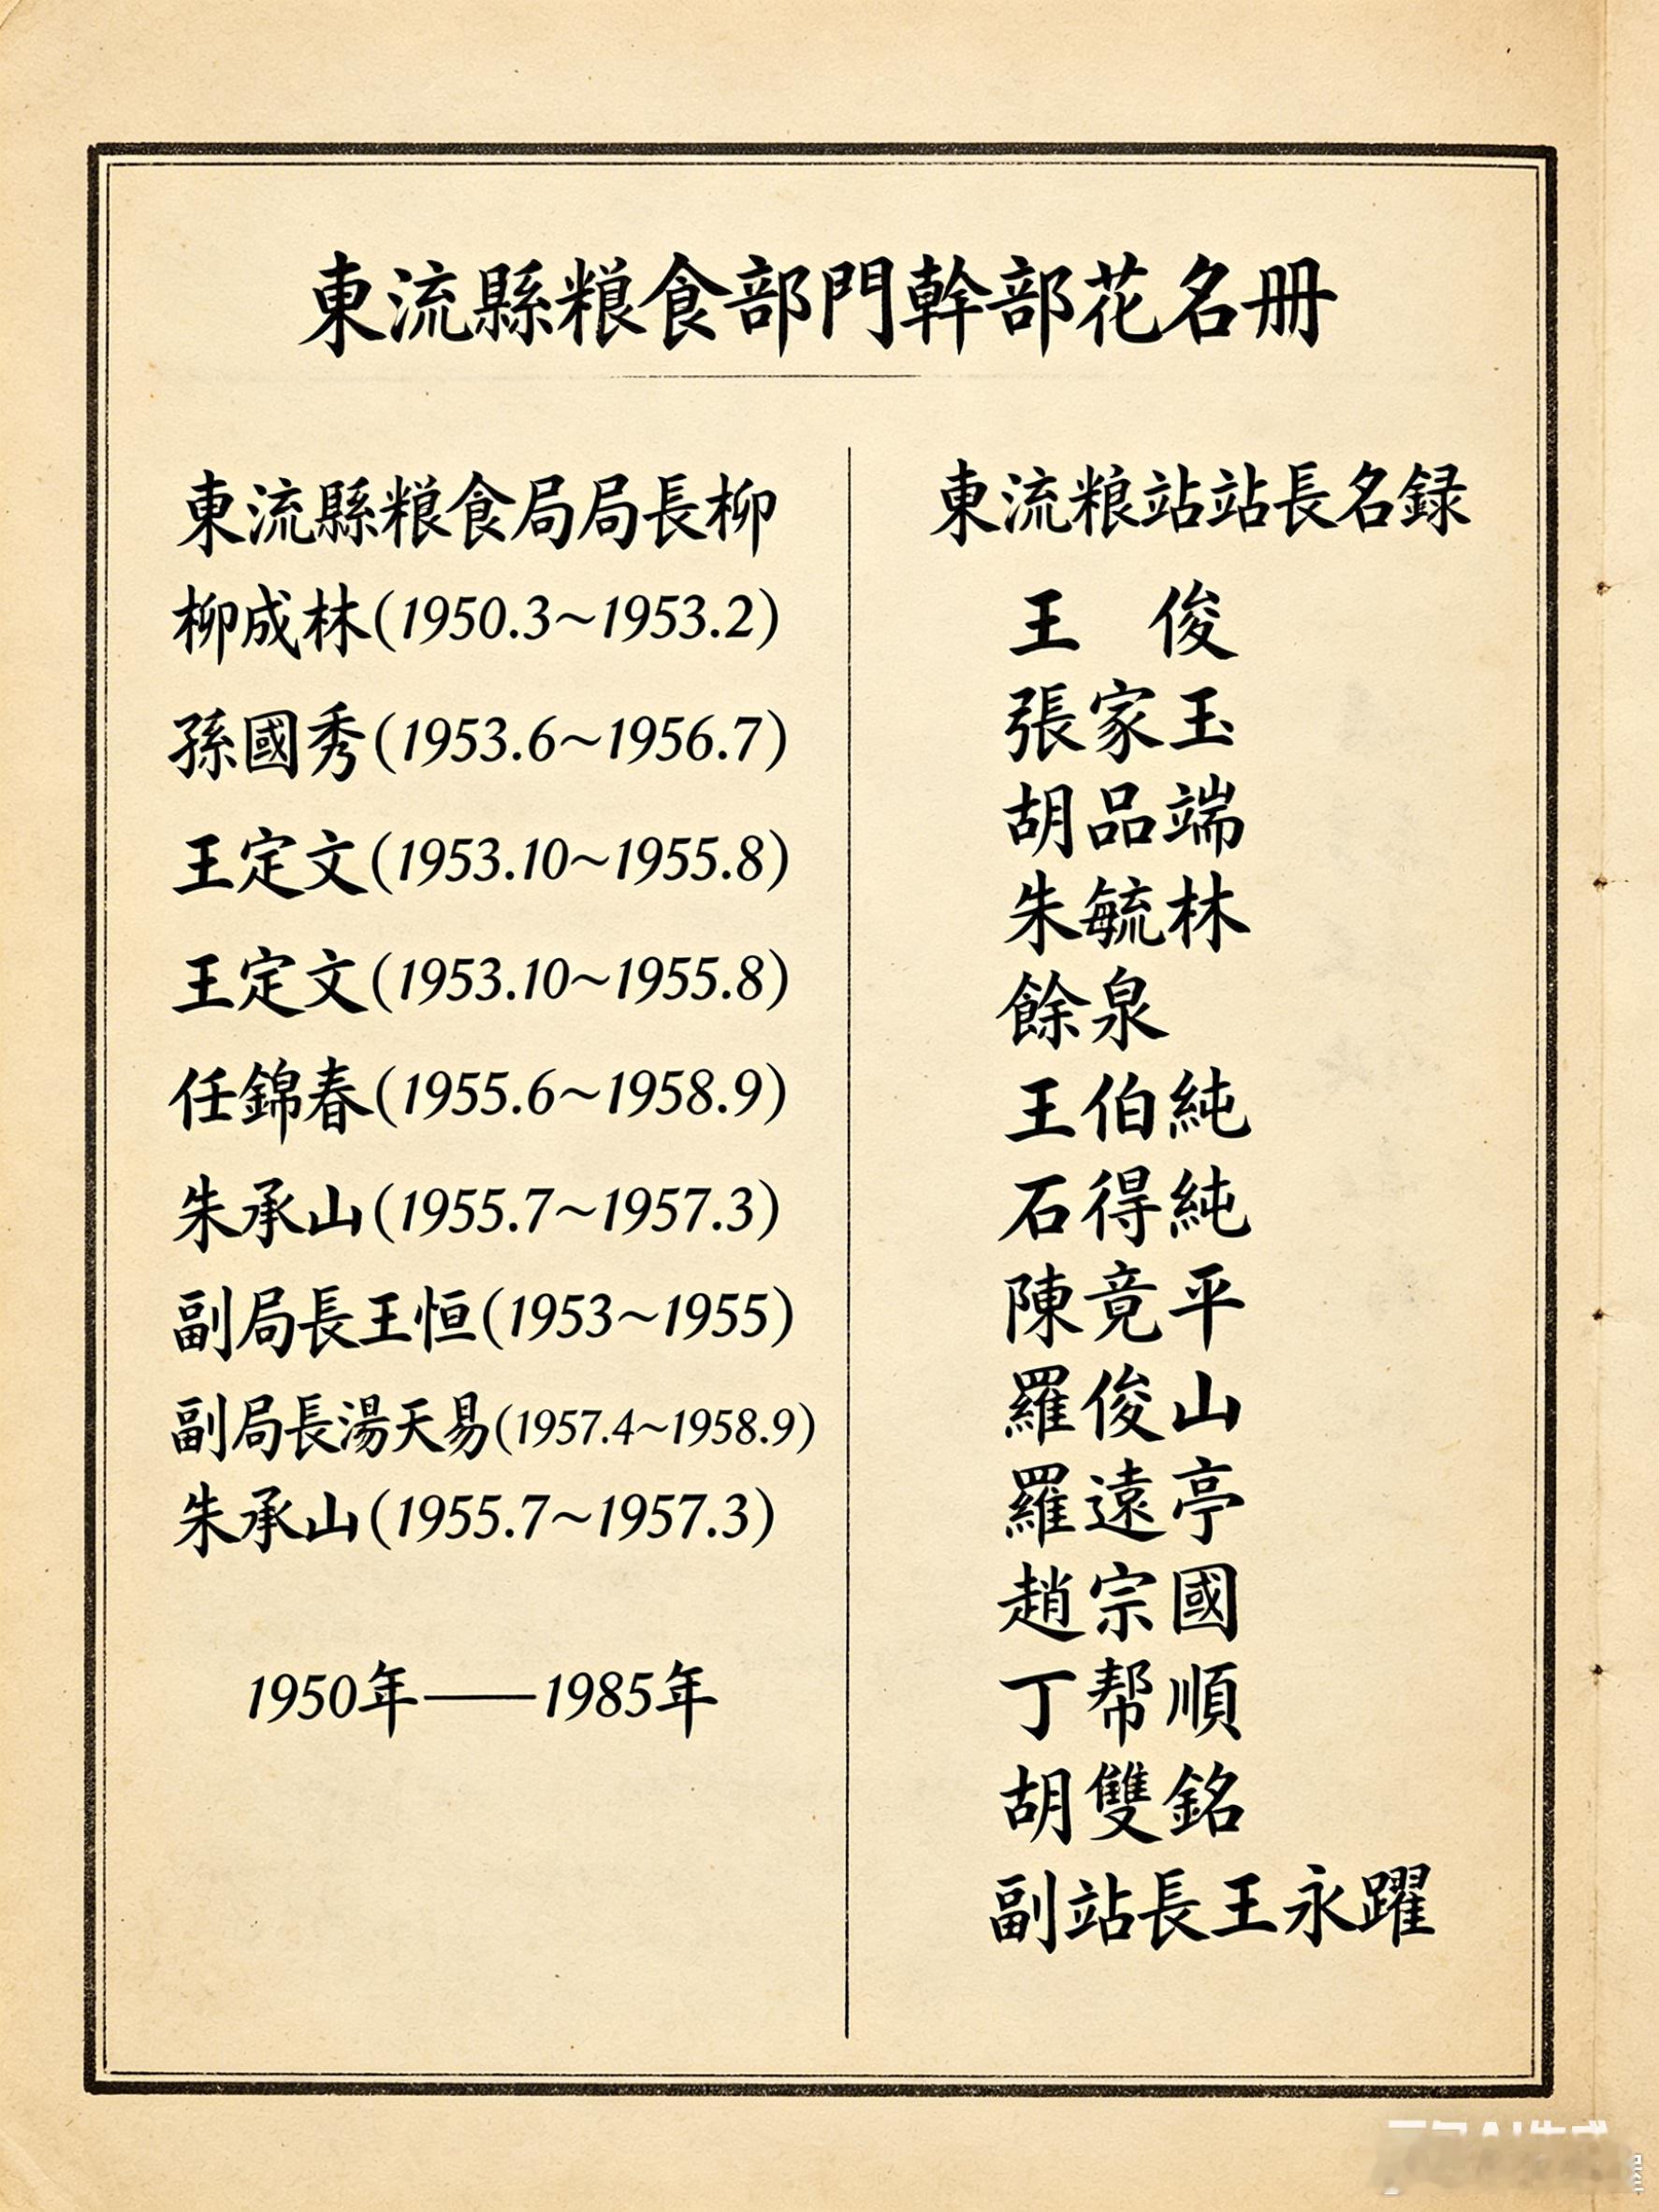 東流縣粮食部門幹部花名册
東流縣粮食局局長柳
柳成林(1950.3~1953.2)
孫國秀(1953.6~1956.7)
王定文(1953.10~1955.8)
王定文(1953.10~1955.8)
任錦春(1955.6~1958.9)
朱承山(1955.7~1957.3)
副局長王恒(1953~1955)
副局長湯天易(1957.4~1958.9)
朱承山(1955.7~1957.3)
1950年——1985年
東流粮站站長名録
王　俊
張家玉
胡品端
朱毓林
餘泉
王伯純
石得純
陳竟平
羅俊山
羅遠亭
趙宗國
丁帮順
胡雙銘
副站長王永躍